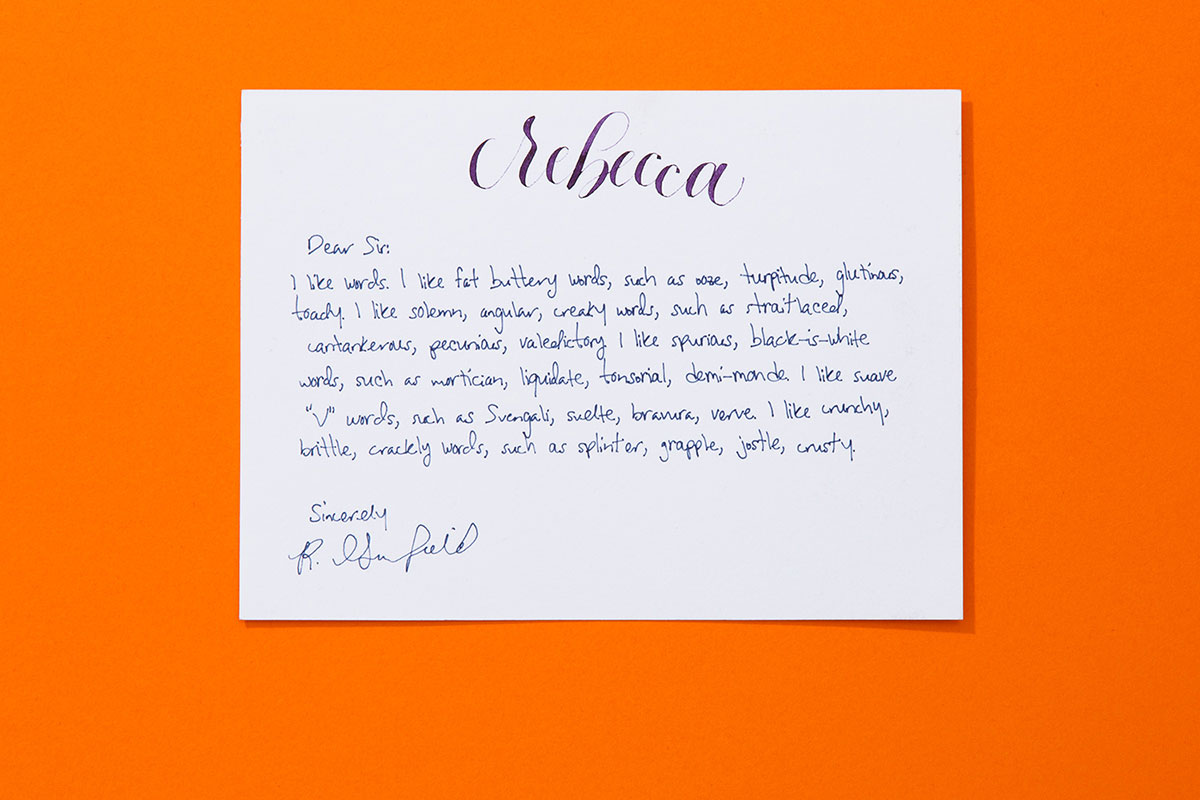 Rebecca
Dear Sir:
I like words. I like fat buttery words, such as ooze, turpitude, glutinous,
toady. I like solemn, angular, creaky words, such as straitlaced,
cantankerous, pecunious, valedictory I like spurious, black-is-white
words, such as mortician, liquidate, tonsorial, demi-monde. I like suave
"V" words, such as Svengali, svelte, bravura, verve. I like crunchy,
brittle, crackly words, such as splinter, grapple, jostle, crusty.
Sincerely
R.